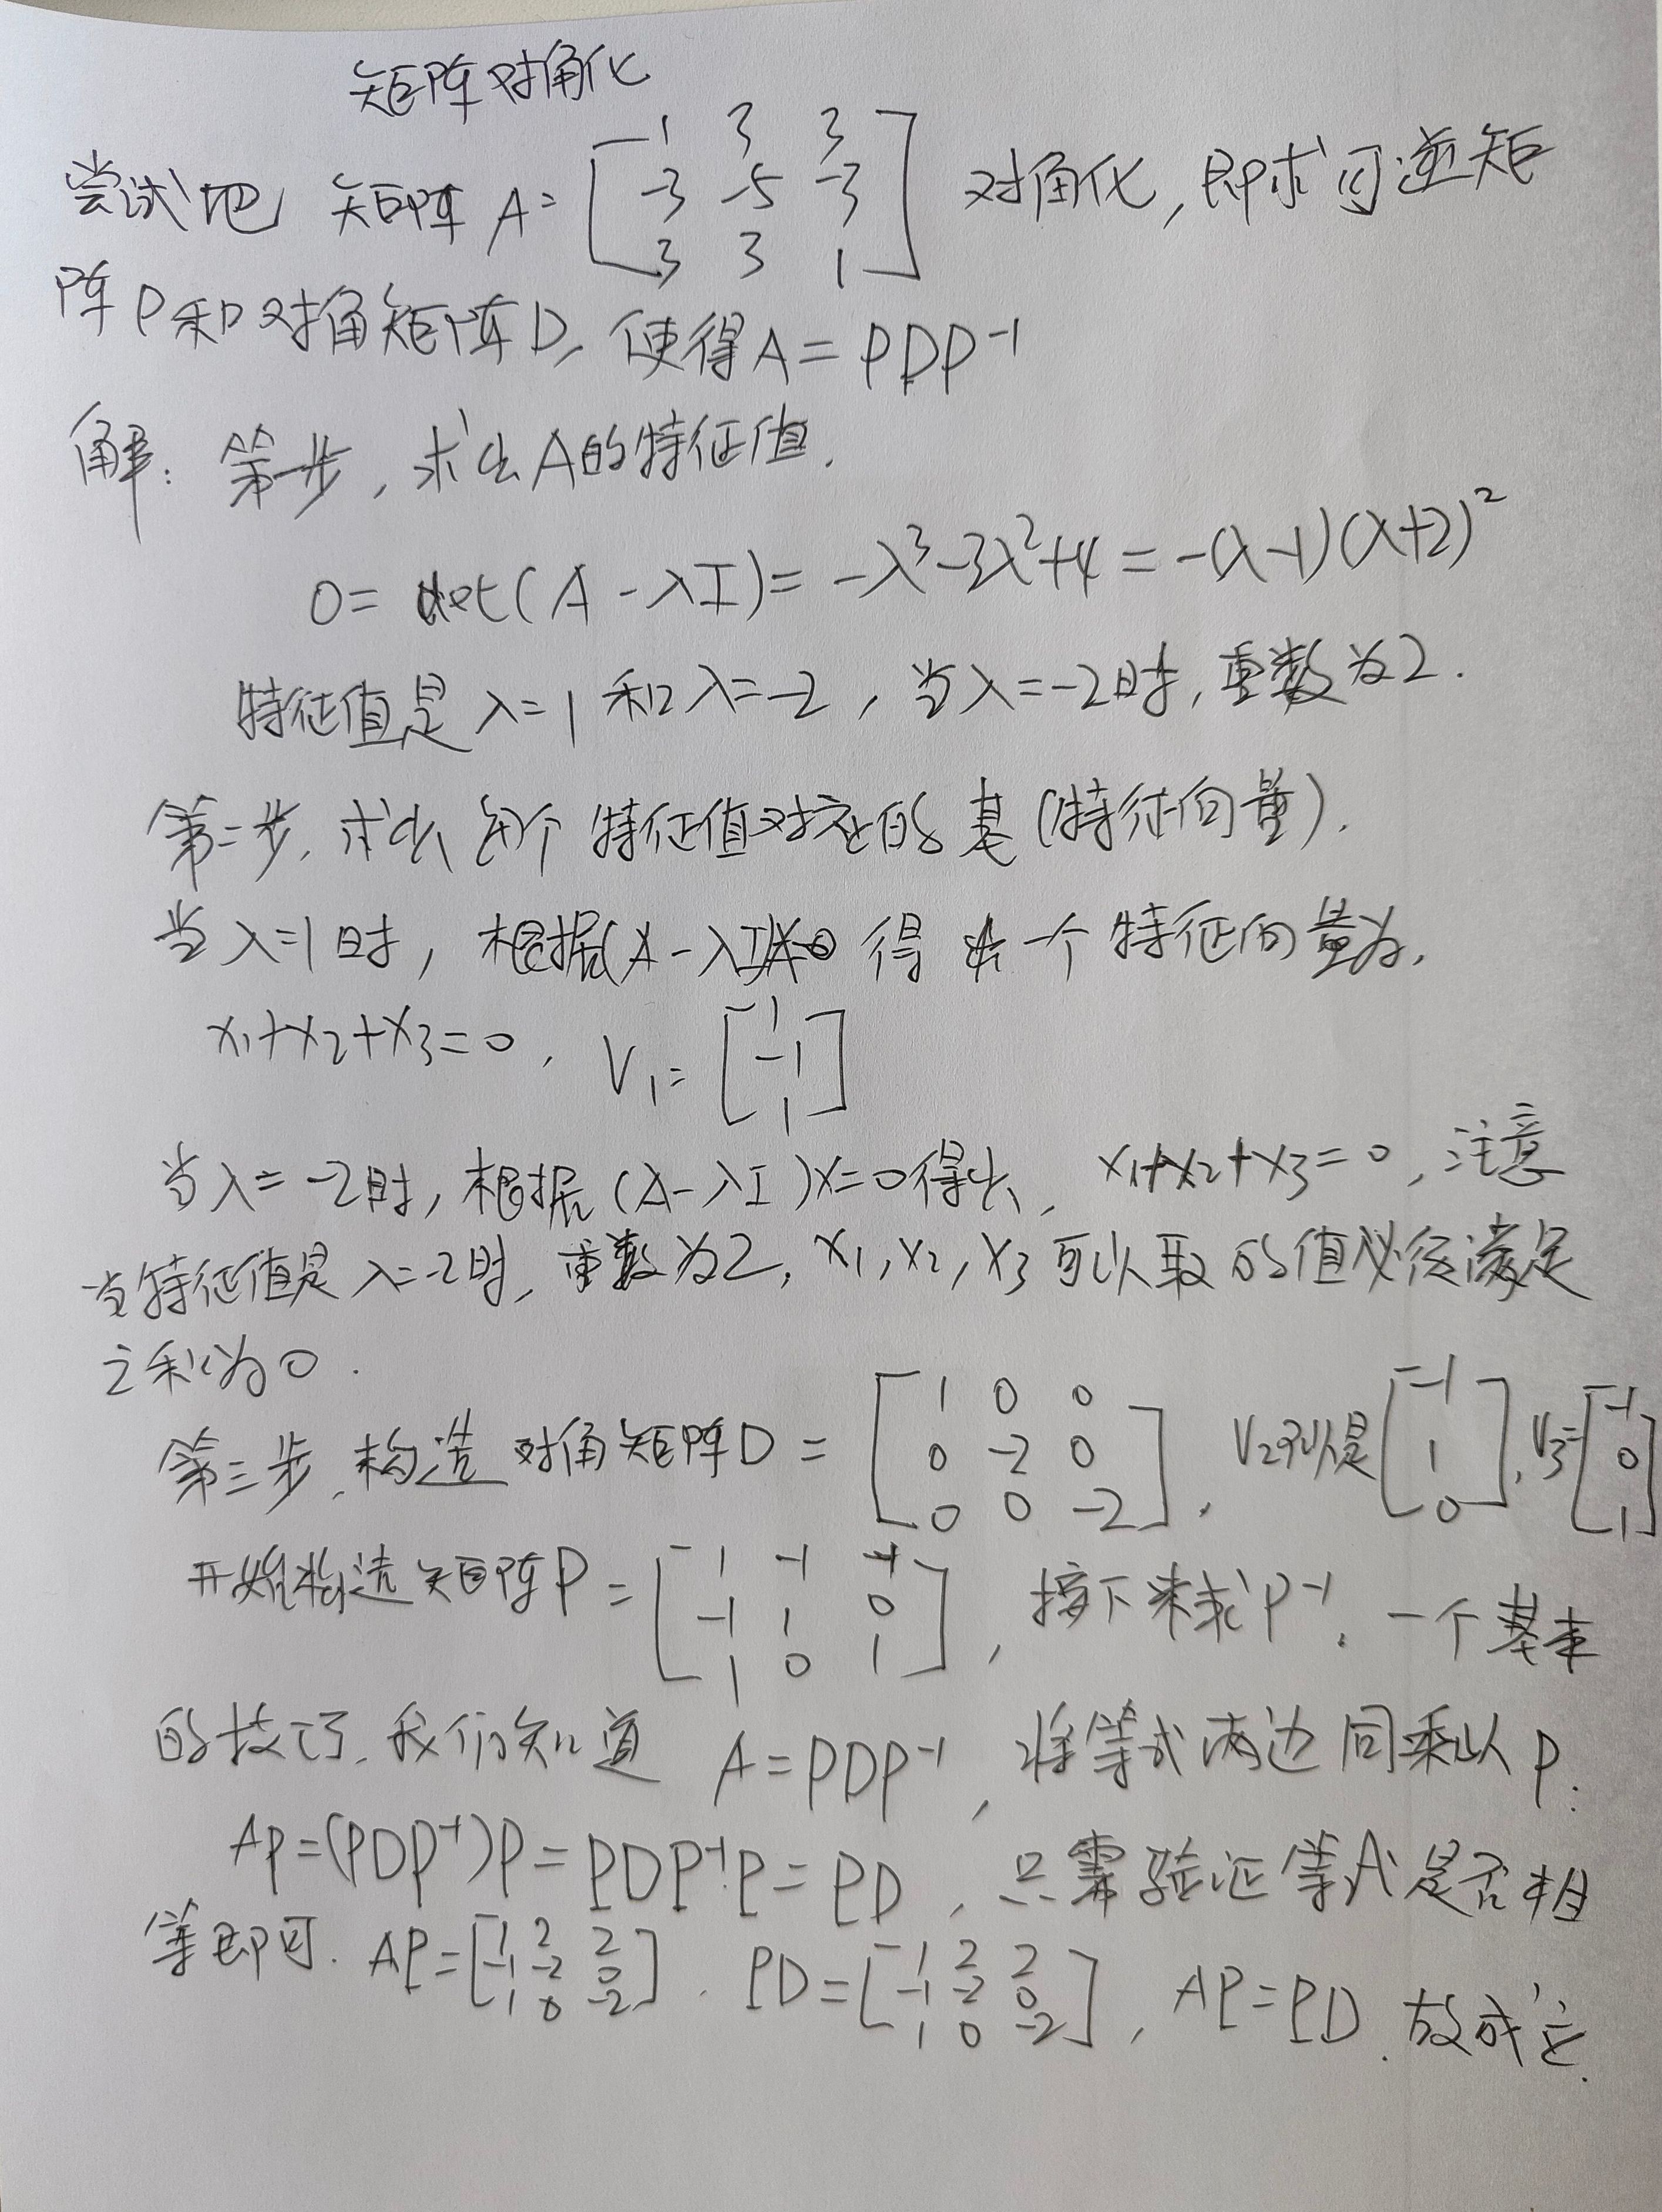 矩阵对角化
尝试把 矩阵 A = [1 3 3; -3 -5 -3; 3 3 1] 对角化, 即求可逆矩
阵P和对角矩阵D, 使得A = PDP⁻¹
解: 第一步, 求出A的特征值.
0 = det(A - λI) = -λ³-3λ²+4 = -(λ-1)(λ+2)²
特征值是 λ=1 和 λ=-2, 当λ=-2时, 重数为2.
第二步, 求出每个特征值对应的基(特征向量).
当λ=1时, 根据(A-λI)X=0 得出一个特征向量为,
x₁+x₂+x₃=0, V₁= [1; -1; 1]
当λ=-2时, 根据(A-λI)X=0得出, x₁+x₂+x₃=0, 注意
当特征值是λ=-2时, 重数为2, x₁, x₂, x₃可以取的值必须满足
之和为0.
第三步, 构造对角矩阵D = [1 0 0; 0 -2 0; 0 0 -2], V₂可以是[-1; 1; 0], V₃=[-1; 0; 1]
开始构造矩阵P = [1 -1 -1; -1 1 0; 1 0 1], 接下来求P⁻¹. 一个基本
的技巧, 我们知道 A=PDP⁻¹, 将等式两边同乘以P.
AP=(PDP⁻¹)P = PDP⁻¹P = PD, 只需验证等式是否相
等即可. AP=[1 2 2; -1 -2 0; 1 0 -2]. PD=[1 2 2; -1 -2 0; 1 0 -2], AP=PD. 故成立.